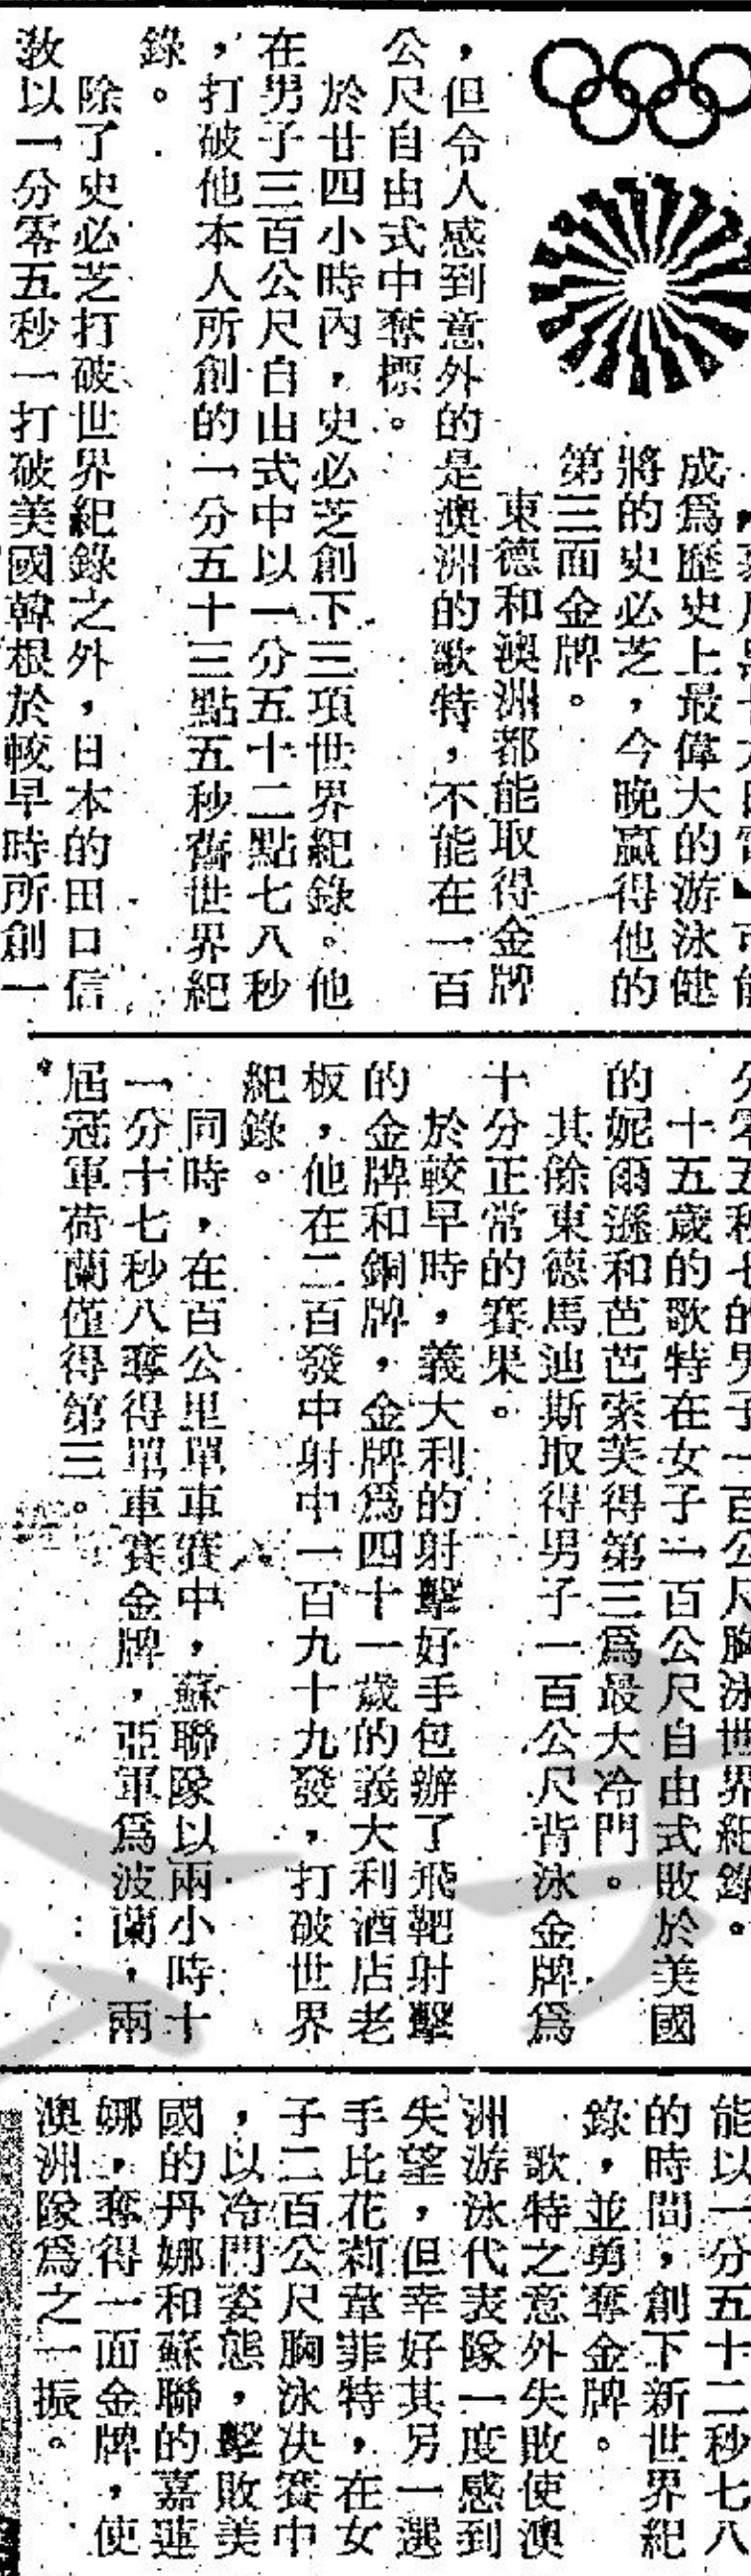 成爲歷史上最偉大的游泳健
將的史必芝，今晚贏得他的
第三面金牌。
東德和澳洲都能取得金牌
，但令人感到意外的是澳洲的歌特，不能在一百
公尺自由式中奪標。
於廿四小時內，史必芝創下三項世界紀錄。他
在男子三百公尺自由式中以一分五十二點七八秒
，打破他本人所創的一分五十三點五秒舊世界紀
錄。
除了史必芝打破世界紀錄之外，日本的田口信
敎以一分零五秒一打破美國韓根於較早時所創一
分零五秒七的男子一百公尺胸泳世界紀錄。
十五歲的歌特在女子一百公尺自由式敗於美國
的妮爾遜和芭芭索芙得第三爲最大冷門。
其餘東德馬迪斯取得男子一百公尺背泳金牌爲
十分正常的賽果。
於較早時，義大利的射擊好手包辦了飛靶射擊
的金牌和銅牌，金牌爲四十一歲的義大利酒店老
板，他在二百發中射中一百九十九發，打破世界
紀錄。
同時，在百公里單車賽中，蘇聯隊以兩小時十
一分十七秒八奪得單車賽金牌，亞軍爲波蘭，兩
屆冠軍荷蘭僅得第三。
能以一分五十二秒七八
的時間，創下新世界紀
錄，並勇奪金牌。
歌特之意外失敗使澳
洲游泳代表隊一度感到
失望，但幸好其另一選
手比花莉韋菲特，在女
子二百公尺胸泳决賽中
，以冷門姿態，擊敗美
國的丹娜和蘇聯的嘉蓮
娜，奪得一面金牌，使
澳洲隊爲之一振。